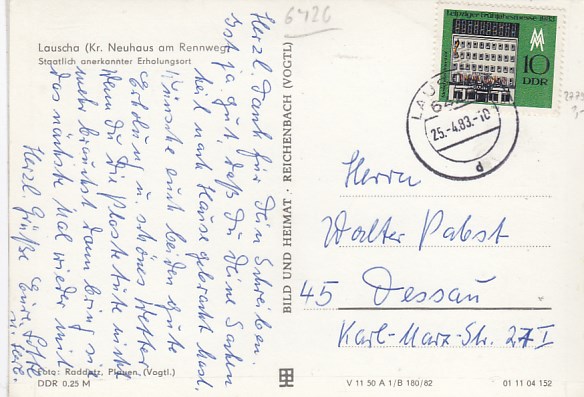 6426
Lauscha (Kr. Neuhaus am Rennweg)
Staatlich anerkannter Erholungsort
Herzl. Dank für Dein Schreiben.
Ist ja gut, daß Du Deine Sachen
heil nach Hause gebracht hast.
Wünsche euch beiden gute
Erholung u. schönes Wetter.
Wenn Du die Plastetüte nicht
mehr brauchst dann bring sie
das nächste Mal wieder mit
Herzl. Grüße Eure Lotte
u. Herb.
Foto: Raddatz, Plauen, (Vogtl.)
DDR 0.25 M
BILD UND HEIMAT · REICHENBACH (VOGTL)
Leipziger Frühjahrsmesse 1983
MM
10
DDR
25.-4.83.-10
Herrn
Walter Pabst
45 Dessau
Karl-Marx-Str. 27 I
V 11 50 A 1/B 180/82
01 11 04 152